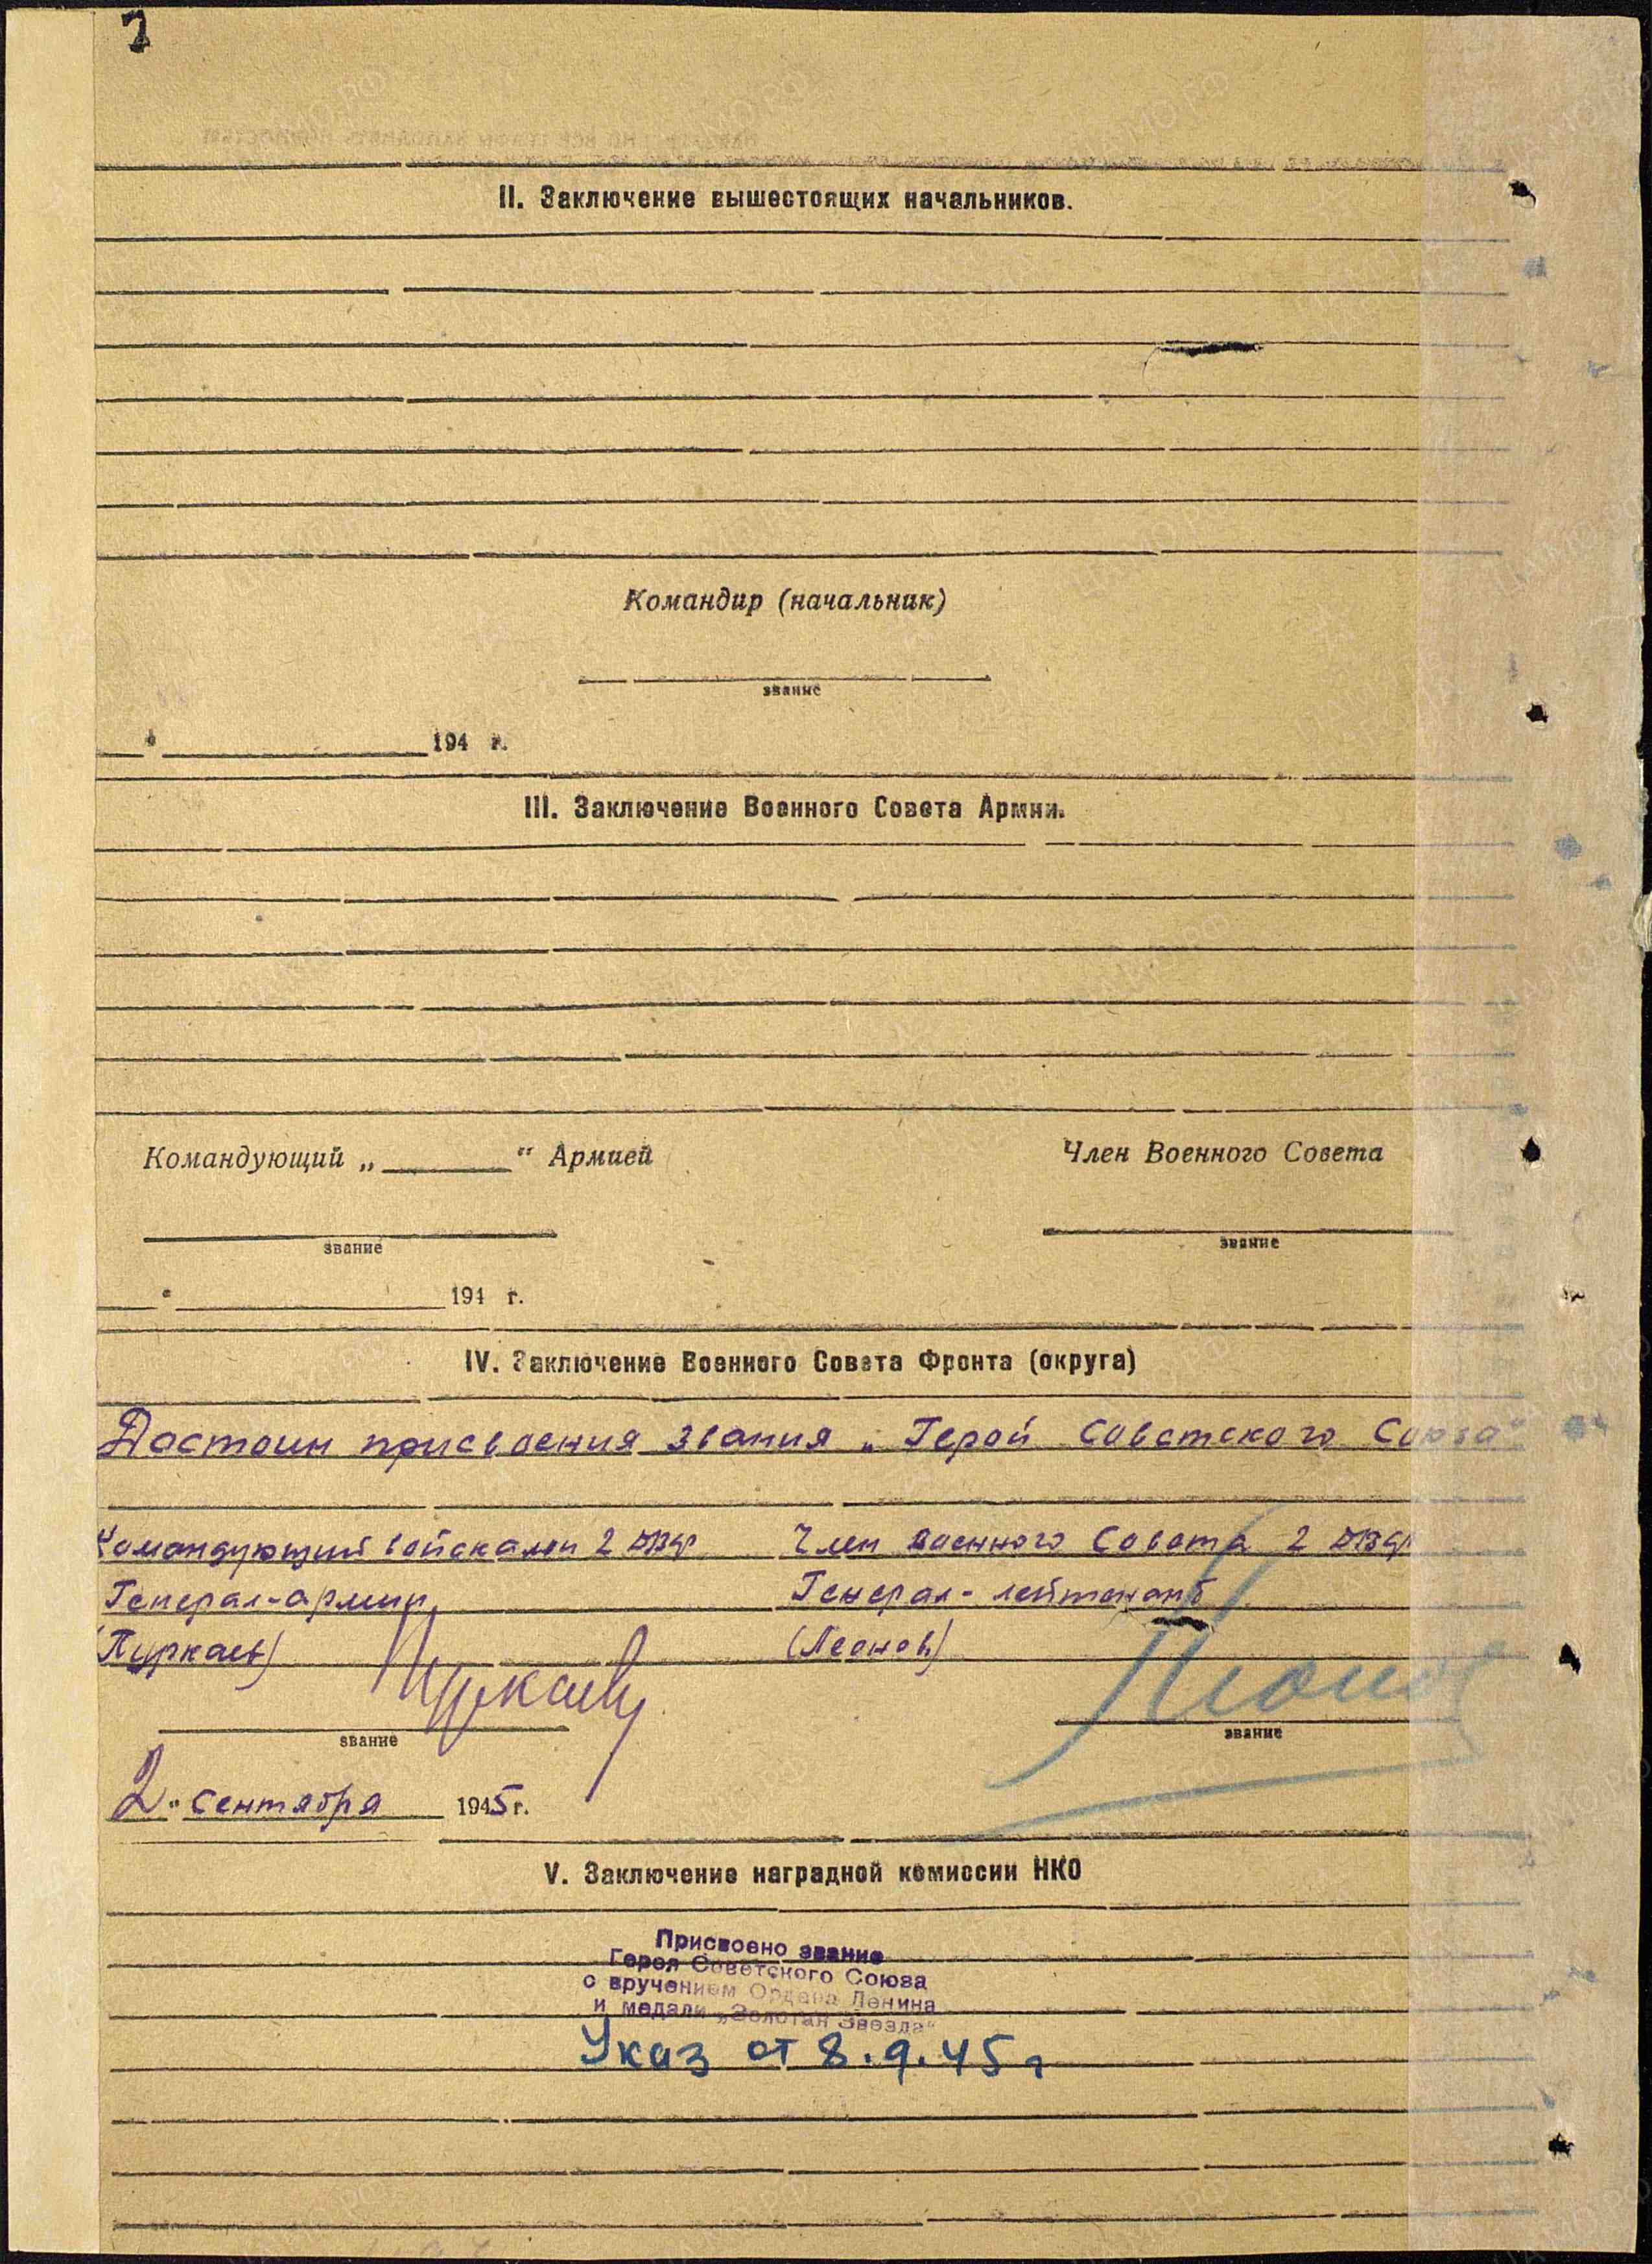 7
II. Заключение вышестоящих начальников.
Командир (начальник)
звание
194 г.
III. Заключение Военного Совета Армии.
Командующий „ “ Армией
Член Военного Совета
звание
звание
194 г.
IV. Заключение Военного Совета Фронта (округа)
Достоин присвоения звания „Герой Советского Союза“
Командующий войсками 2 ДВФ
Член Военного Совета 2 ДВФ
Генерал-армии
Генерал-лейтенант
(Пуркаев) Пуркаев
(Леонов) Леонов
звание
звание
2 " сентября 1945 г.
V. Заключение наградной комиссии НКО
Присвоено звание
Героя Советского Союза
с вручением Ордена Ленина
и медали „Золотая Звезда“
Указ от 8.9.45 г